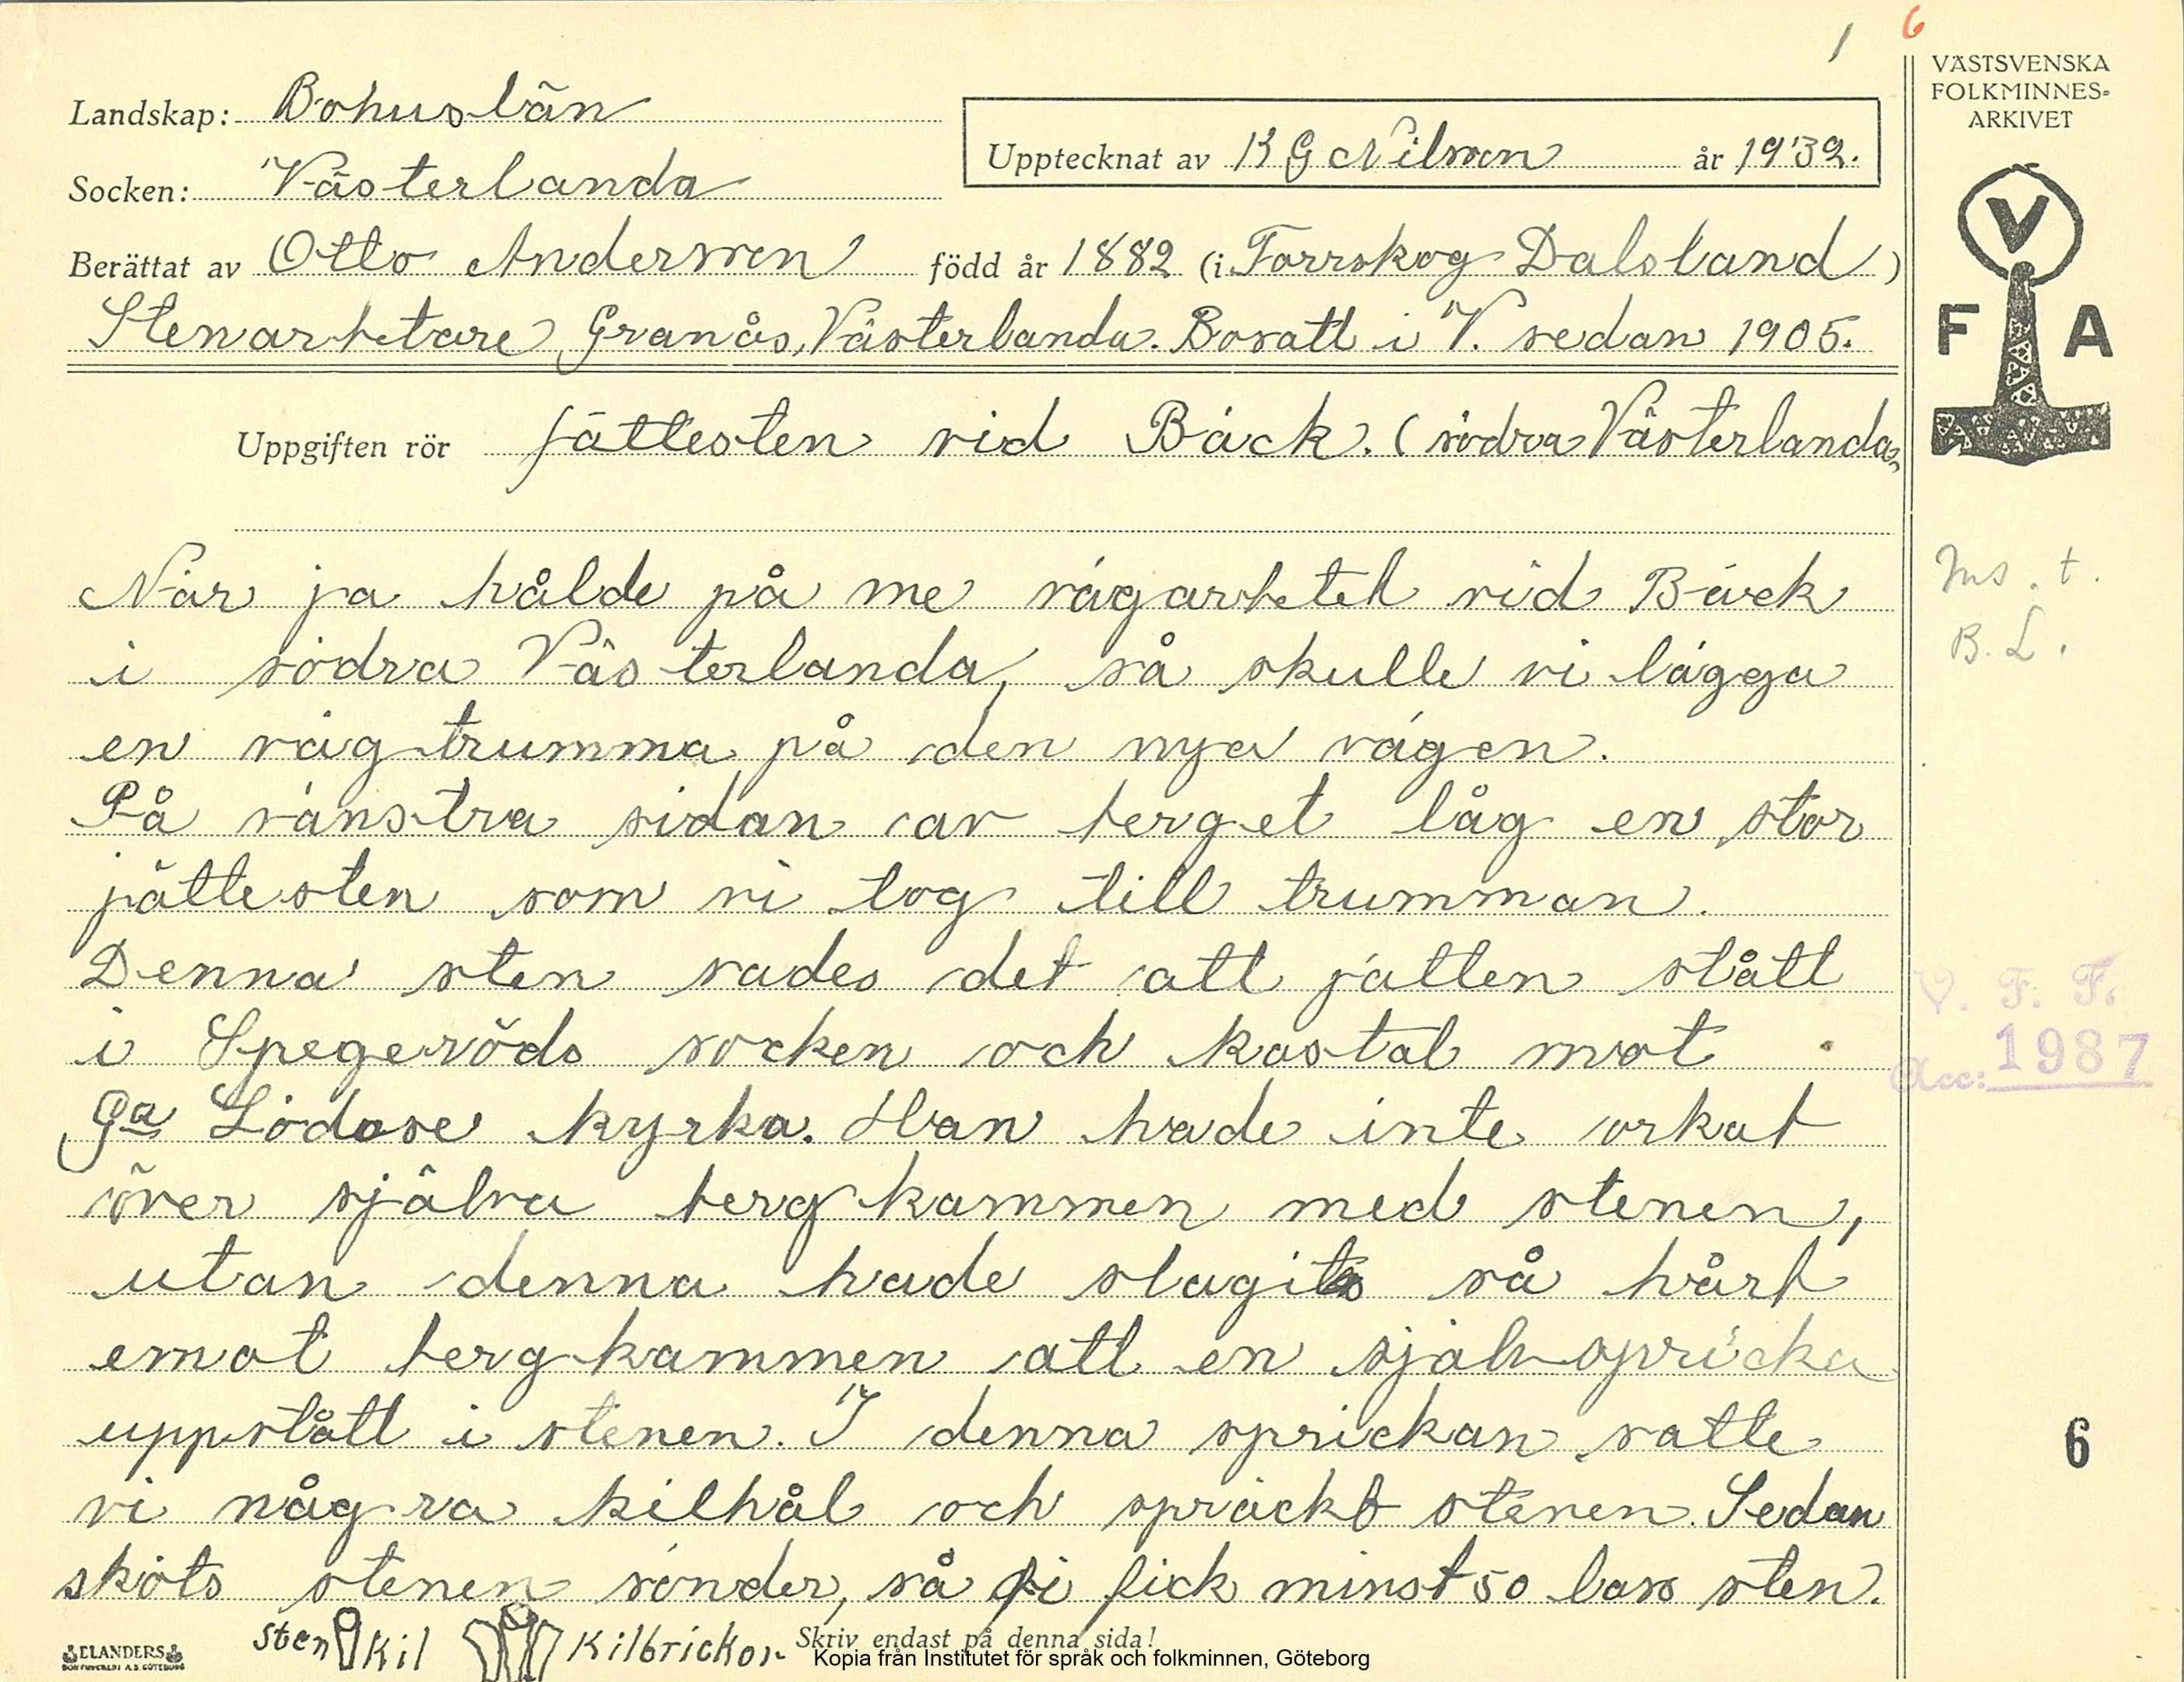 1 6
VÄSTSVENSKA
FOLKMINNES-
ARKIVET
Landskap: Bohuslän
Upptecknat av K G Nilsson år 1932.
Socken: Västerlanda
Berättat av Otto Andersson född år 1882 (i Torrskog Dalsland)
Stenarbetare, Granås, Västerlanda. Bosatt i V. sedan 1905.
V
F A
Uppgiften rör Jättesten vid Bäck. (södra Västerlanda)
När ja hålde på me vägarbetet vid Bäck
i södra Västerlanda, så skulle vi lägga
en vägtrumma på den nya vägen.
På vänstra sidan av berget låg en stor
jättesten som vi tog till trumman.
Denna sten sades det att jätten stått
i Spegeröds socken och kastat mot
Ga Lödöse kyrka. Han hade inte orkat
över själva bergkammen med stenen,
utan denna hade slagits så hårt
emot bergkammen att en självspricka
uppstått i stenen. I denna sprickan satte
vi några kilhål och spräckt stenen. Sedan
sköts stenen sönder, så vi fick minst 50 lass sten.
Sten Kil Kilbrickor
Ms. t.
B. L.
V. F. F.
Acc: 1987
6
ELANDERS
BOKTRYCKERI A.B. GÖTEBORG
Skriv endast på denna sida!
Kopia från Institutet för språk och folkminnen, Göteborg